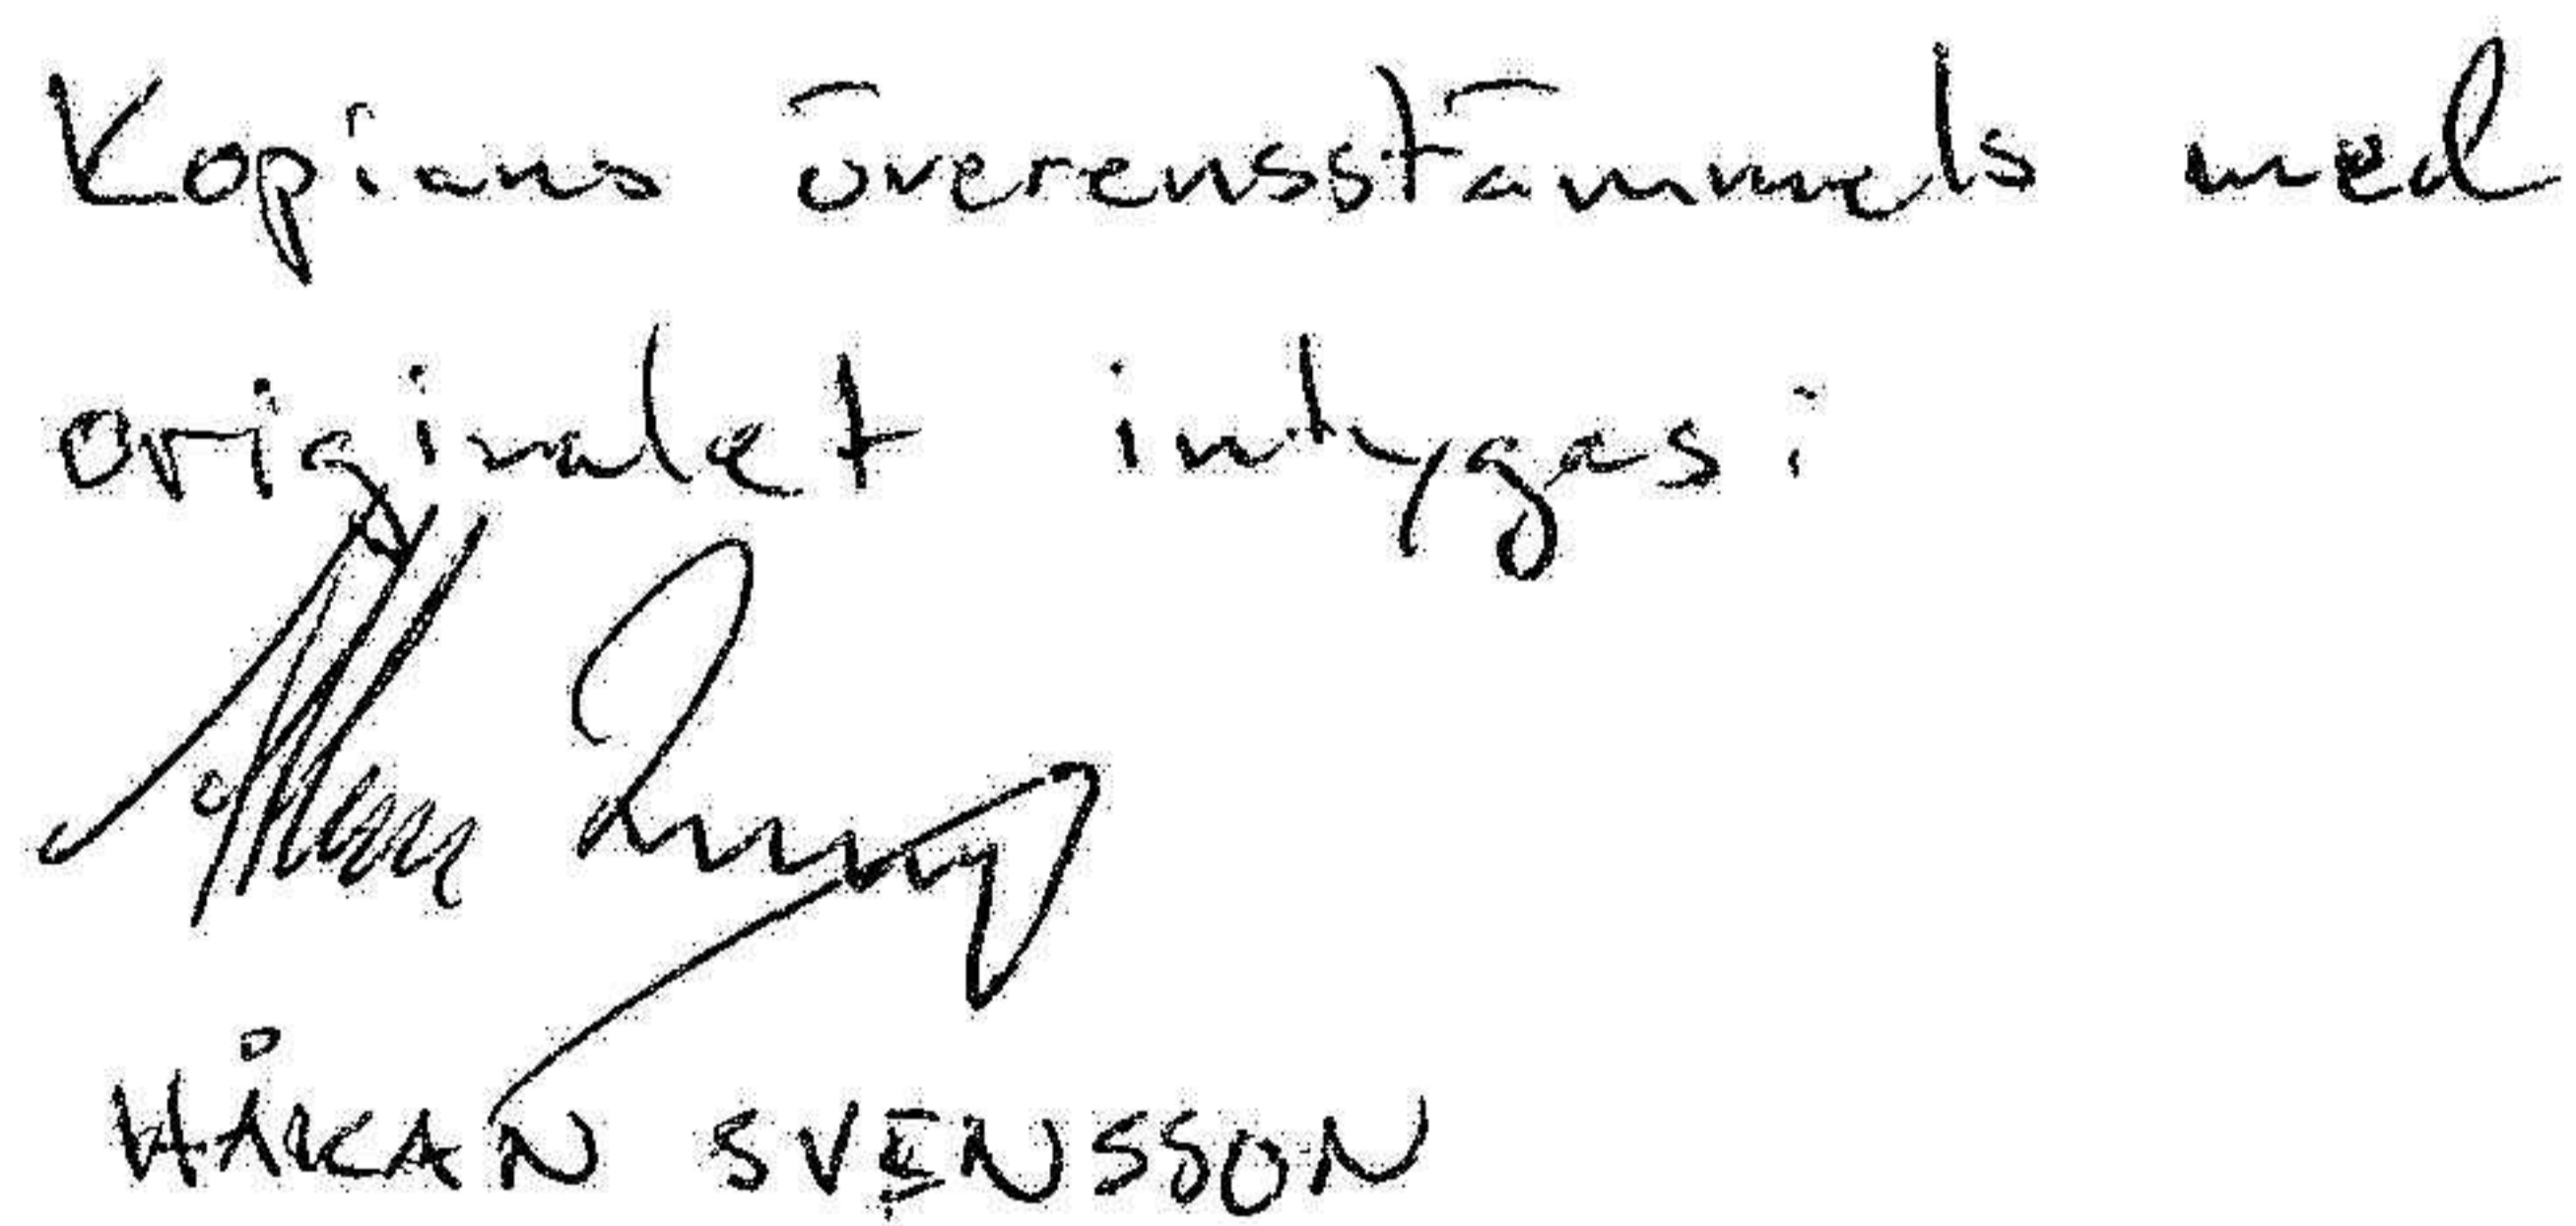 Kopians överensstämmels med
originalet intygas:
HÅKAN SVENSSON